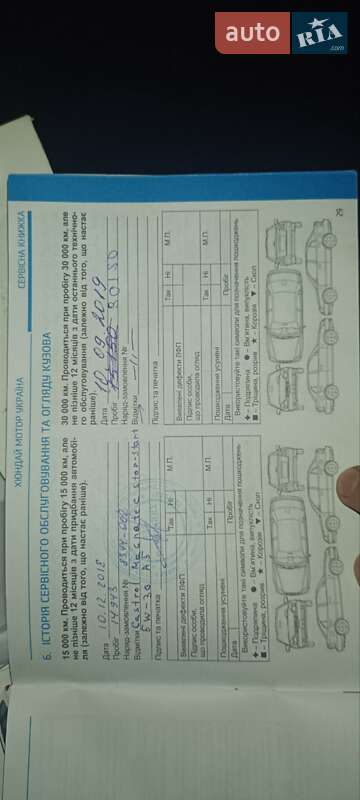 auto RIA .com
ХЮНДАЙ МОТОР УКРАЇНА
СЕРВІСНА КНИЖКА
6. ІСТОРІЯ СЕРВІСНОГО ОБСЛУГОВУВАННЯ ТА ОГЛЯДУ КУЗОВА
15 000 км. Проводиться при пробігу 15 000 км, але
не пізніше 12 місяців з дати придбання автомобі-
ля (залежно від того, що настає раніше).
Дата 10.12.2018
Пробіг
Наряд-замовлення №
Відмітки Castrol Magnatec Stop-Start
5W-30 A5
Підпис та печатка
Так Ні М.П.
Виявлені дефекти ЛФП
Підпис особи,
що проводила огляд
Так Ні М.П.
Пошкодження усунені
Дата Пробіг
Використовуйте такі символи для позначення пошкоджень
✦ – Подряпина ● – Вм'ятина, випуклість
■ – Тріщина, розрив ★ – Корозія ▼ – Скол
30 000 км. Проводиться при пробігу 30 000 км, але
не пізніше 12 місяців з дати останнього технічно-
го обслуговування (залежно від того, що настає
раніше).
Дата 09 2019
Пробіг 30150
Наряд-замовлення №
Відмітки
Підпис та печатка
Так Ні М.П.
Виявлені дефекти ЛФП
Підпис особи,
що проводила огляд
Так Ні М.П.
Пошкодження усунені
Дата Пробіг
Використовуйте такі символи для позначення пошкоджень
✦ – Подряпина ● – Вм'ятина, випуклість
■ – Тріщина, розрив ★ – Корозія ▼ – Скол
29